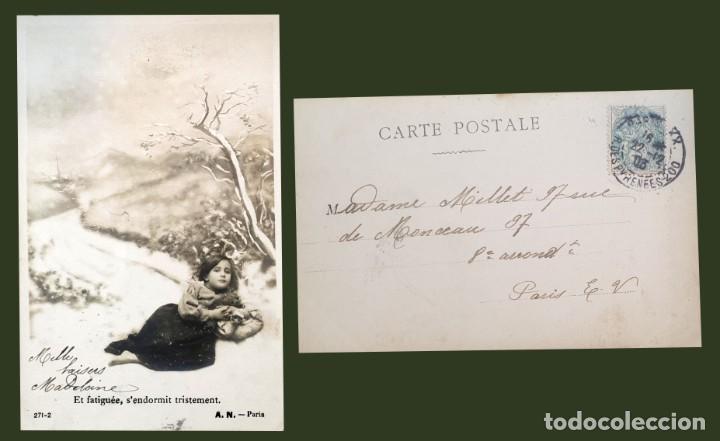 Mille
baisers
Madeleine
Et fatiguée, s'endormit tristement.
271-2
A. N. — Paris
CARTE POSTALE
Madame Millet 97 rue
de Monceau 97
8e arrondt
Paris E. V.
PYRENEES
todocoleccion.net